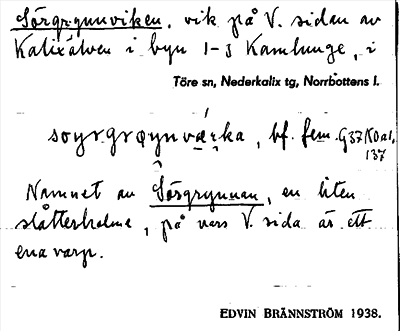 Sörgrynnviken, vik på V. sidan av
Kalixälven i byn 1-3 Kamlunge, i
Töre sn, Nederkalix tg, Norrbottens l.
bf. fem.
137
Namnet av Sörgrynnan, en liten
slåtterholme, på vars V. sida är ett
enavarp.
EDVIN BRÄNNSTRÖM 1938.